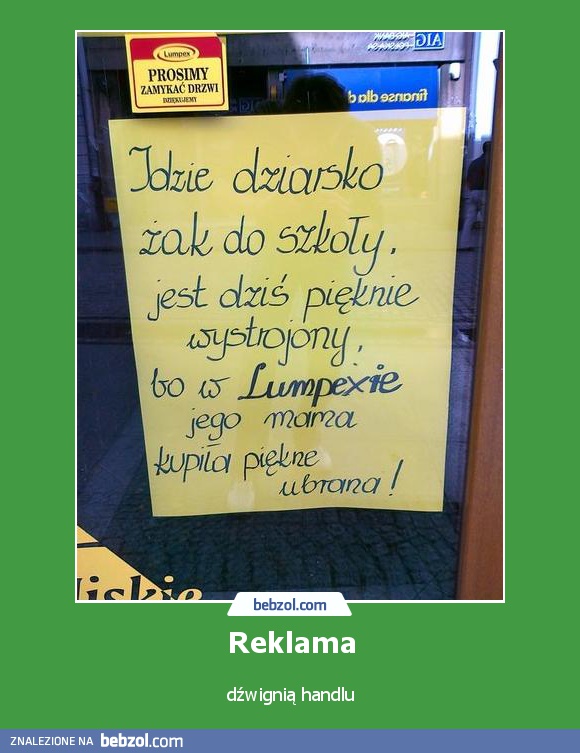 Lumpex
PROSIMY
ZAMYKAĆ DRZWI
DZIĘKUJEMY
AIG
AIG BANK
POLSKA SA
finanse dla d
Idzie dziarsko
żak do szkoły,
jest dziś pięknie
wystrojony,
bo w Lumpexie
jego mama
kupiła piękne
ubrana!
liskie
bebzol.com
Reklama
dźwignią handlu
ZNALEZIONE NA bebzol.com